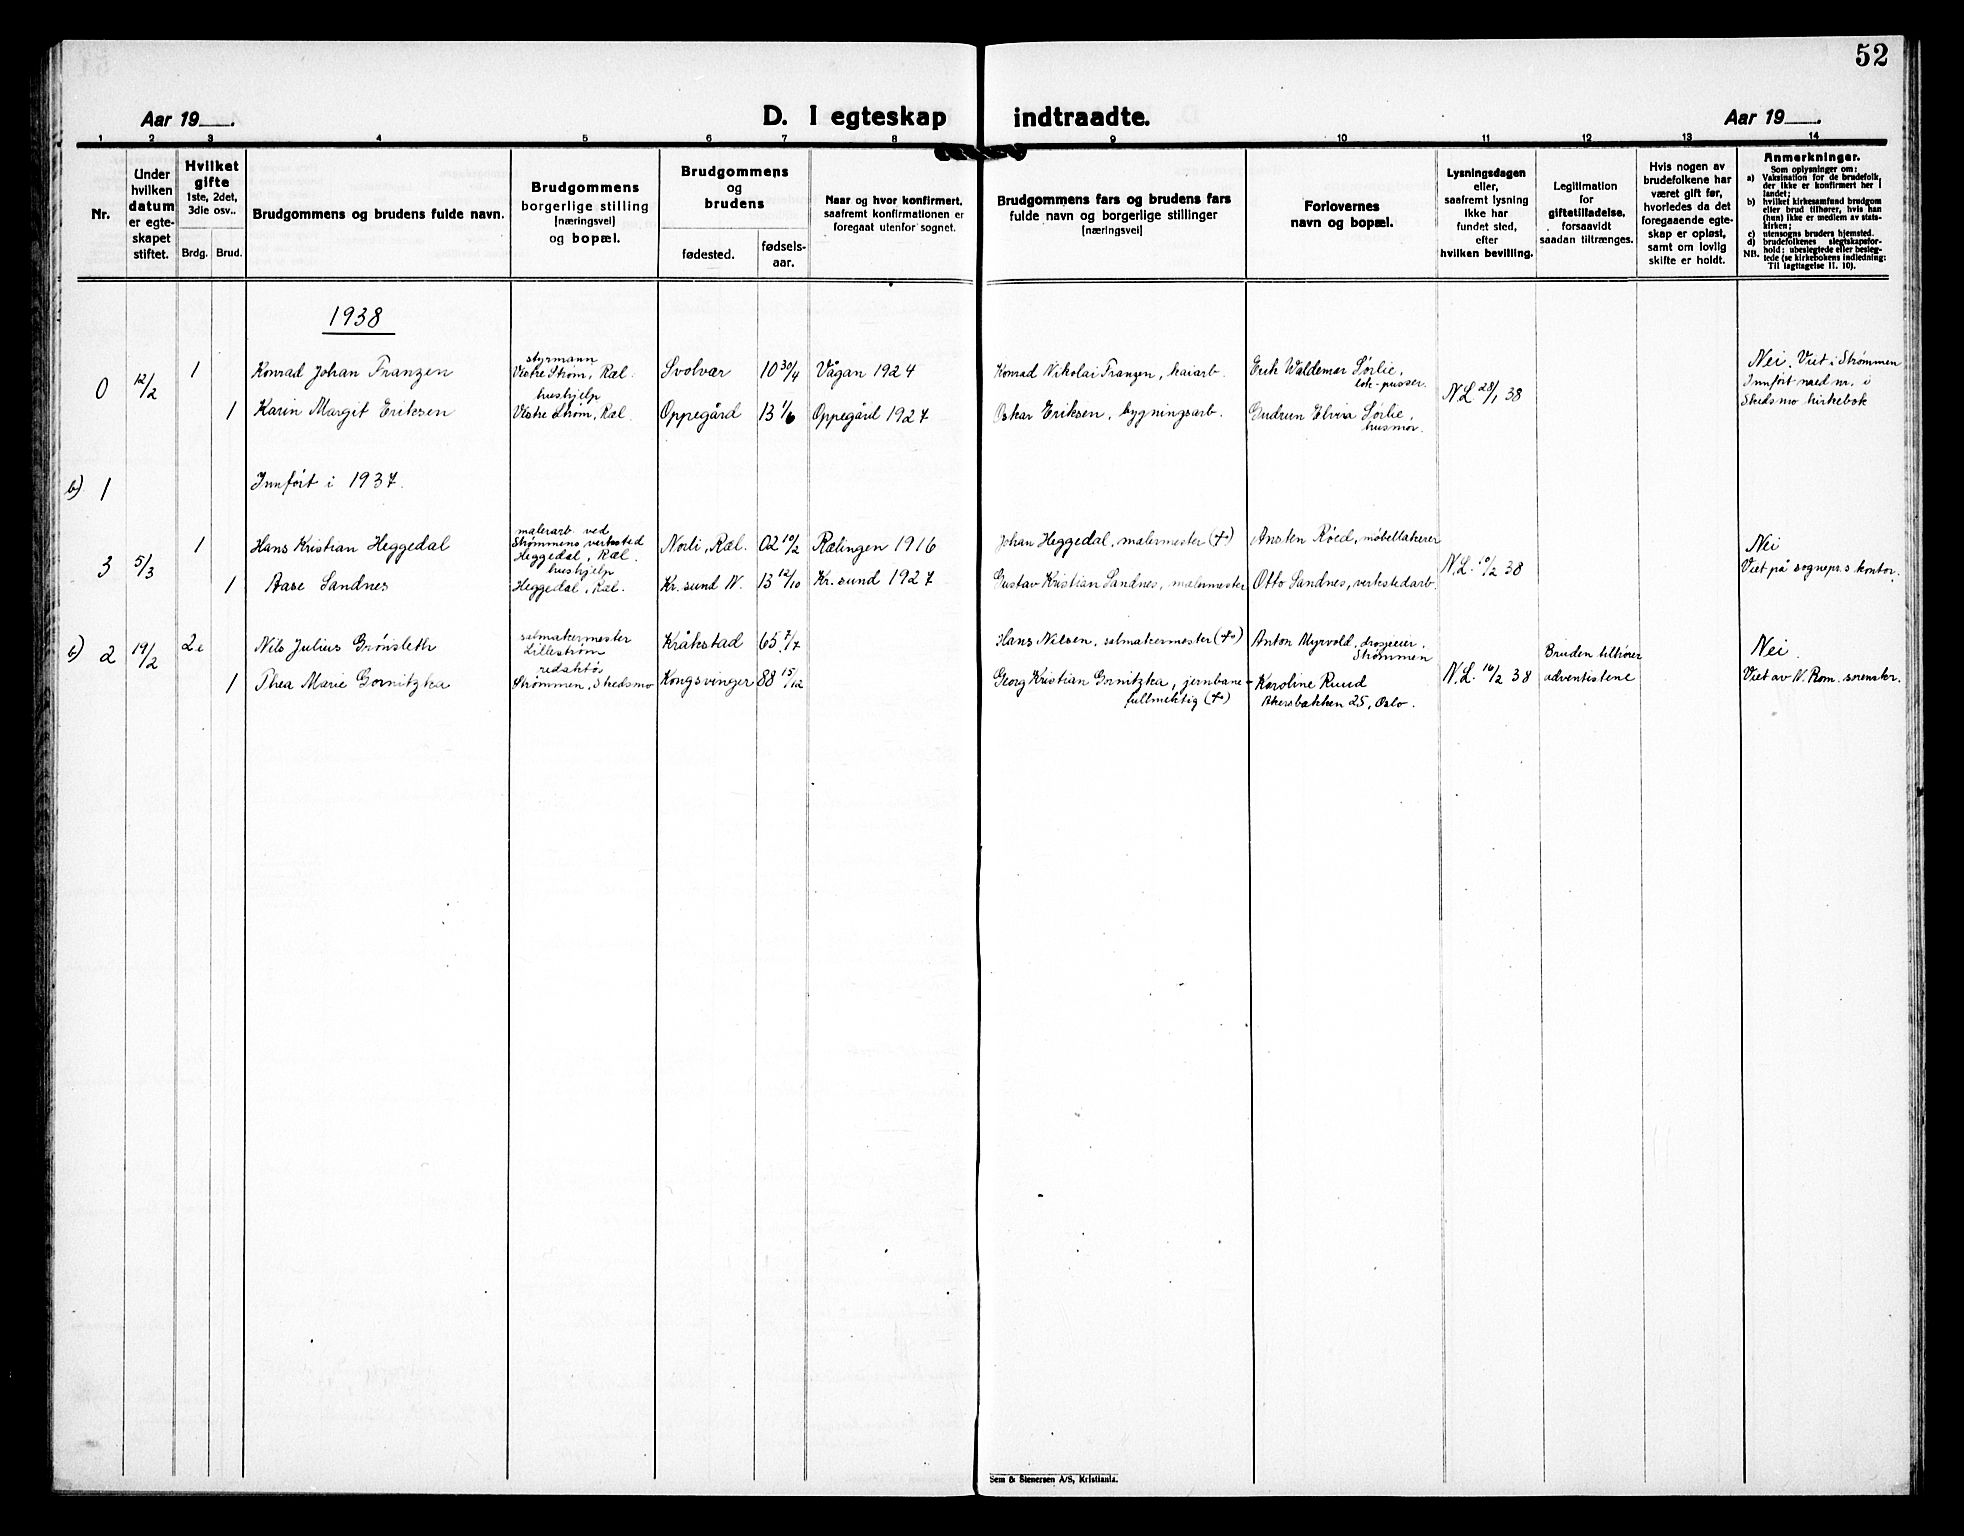 52
Aar 19____.
D. I egteskap indtraadte.
Aar 19____.
1 2 3 4 5 6 7 8 9 10 11 12 13 14
Nr.
Under hvilken datum er egte-skapet stiftet.
Hvilket gifte 1ste, 2det, 3die osv..
Brdg. Brud.
Brudgommens og brudens fulde navn.
Brudgommens borgerlige stilling [næringsvei] og bopæl.
Brudgommens og brudens
fødested. fødsels-aar.
Naar og hvor konfirmert, saafremt konfirmationen er foregaat utenfor sognet.
Brudgommens fars og brudens fars fulde navn og borgerlige stillinger [næringsvei]
Forlovernes navn og bopæl.
Lysningsdagen eller, saafremt lysning ikke har fundet sted, efter hvilken bevilling.
Legitimation for giftetilladelse, forsaavidt saadan tiltrænges.
Hvis nogen av brudefolkene har været gift før, hvorledes da det foregaaende egte-skap er opløst, samt om lovlig skifte er holdt.
Anmerkninger.
Som oplysninger om:
a) Vaksination for de brudefolk, der ikke er konfirmert her i landet;
b) hvilket kirkesamfund brudgom eller brud tilhører, hvis han (hun) ikke er medlem av stats-kirken;
c) utensogns bruders hjemsted.
d) brudefolkenes slegtskapsfor-hold: ubeslegtede eller besleg-tede (se kirkebokens indledning: Til iagttagelse II. 10).
NB.
1938
0 12/2 1 Konrad Johan Franzen styrmann Vestre Strøm, Ræl. Svolvær 10 30/4 Vågan 1924 Konrad Nikolai Franzen, kaiarb. Erik Waldemar Sørlie, lok-pusser. N.L. 28/1 38 Nei. Viet i Strømmen
Innført med nr. i
Skedsmo kirkebok
1 Karin Margit Eriksen hushjelp Vestre Strøm, Ræl. Oppegård 13 1/6 Oppegård 1927 Oskar Eriksen, bygningsarb. Gudrun Elvira Sørlie, husmor.
b) 1 Innført i 1937.
3 5/3 1 Hans Kristian Heggedal malerarb ved Strømmens verksted Heggedal, Ræl. Norli, Ræl. 02 10/2 Rælingen 1916 Johan Heggedal, malermester (+) Ansten Röed, møbellakerer N.L. 10/2 38 Nei
Viet på sognepr.s kontor.
1 Aase Sandnes hushjelp Heggedal, Ræl. Kr.sund N. 13 12/10 Kr.sund 1927 Gustav Kristian Sandnes, malermester Otto Sandnes, verkstedarb.
2 19/2 2 Nils Julius Grönsleth salmakermester Lillestrøm Kråkstad 65 7/7 Hans Nilsen, salmakermester (+) Anton Myrvold, drosjeeier, Strømmen N.L. 16/2 38 Bruden tilhører adventistene Nei.
Viet av N. Rom. sorenskr.
1 Thea Marie Gornitzka redaktør Strømmen, Skedsmo Kongsvinger 88 15/12 Georg Kristian Gornitzka, jernbane-fullmektig (+) Karoline Ruud Akersbakken 25, Oslo.
Sem & Stenersen A/S, Kristiania.